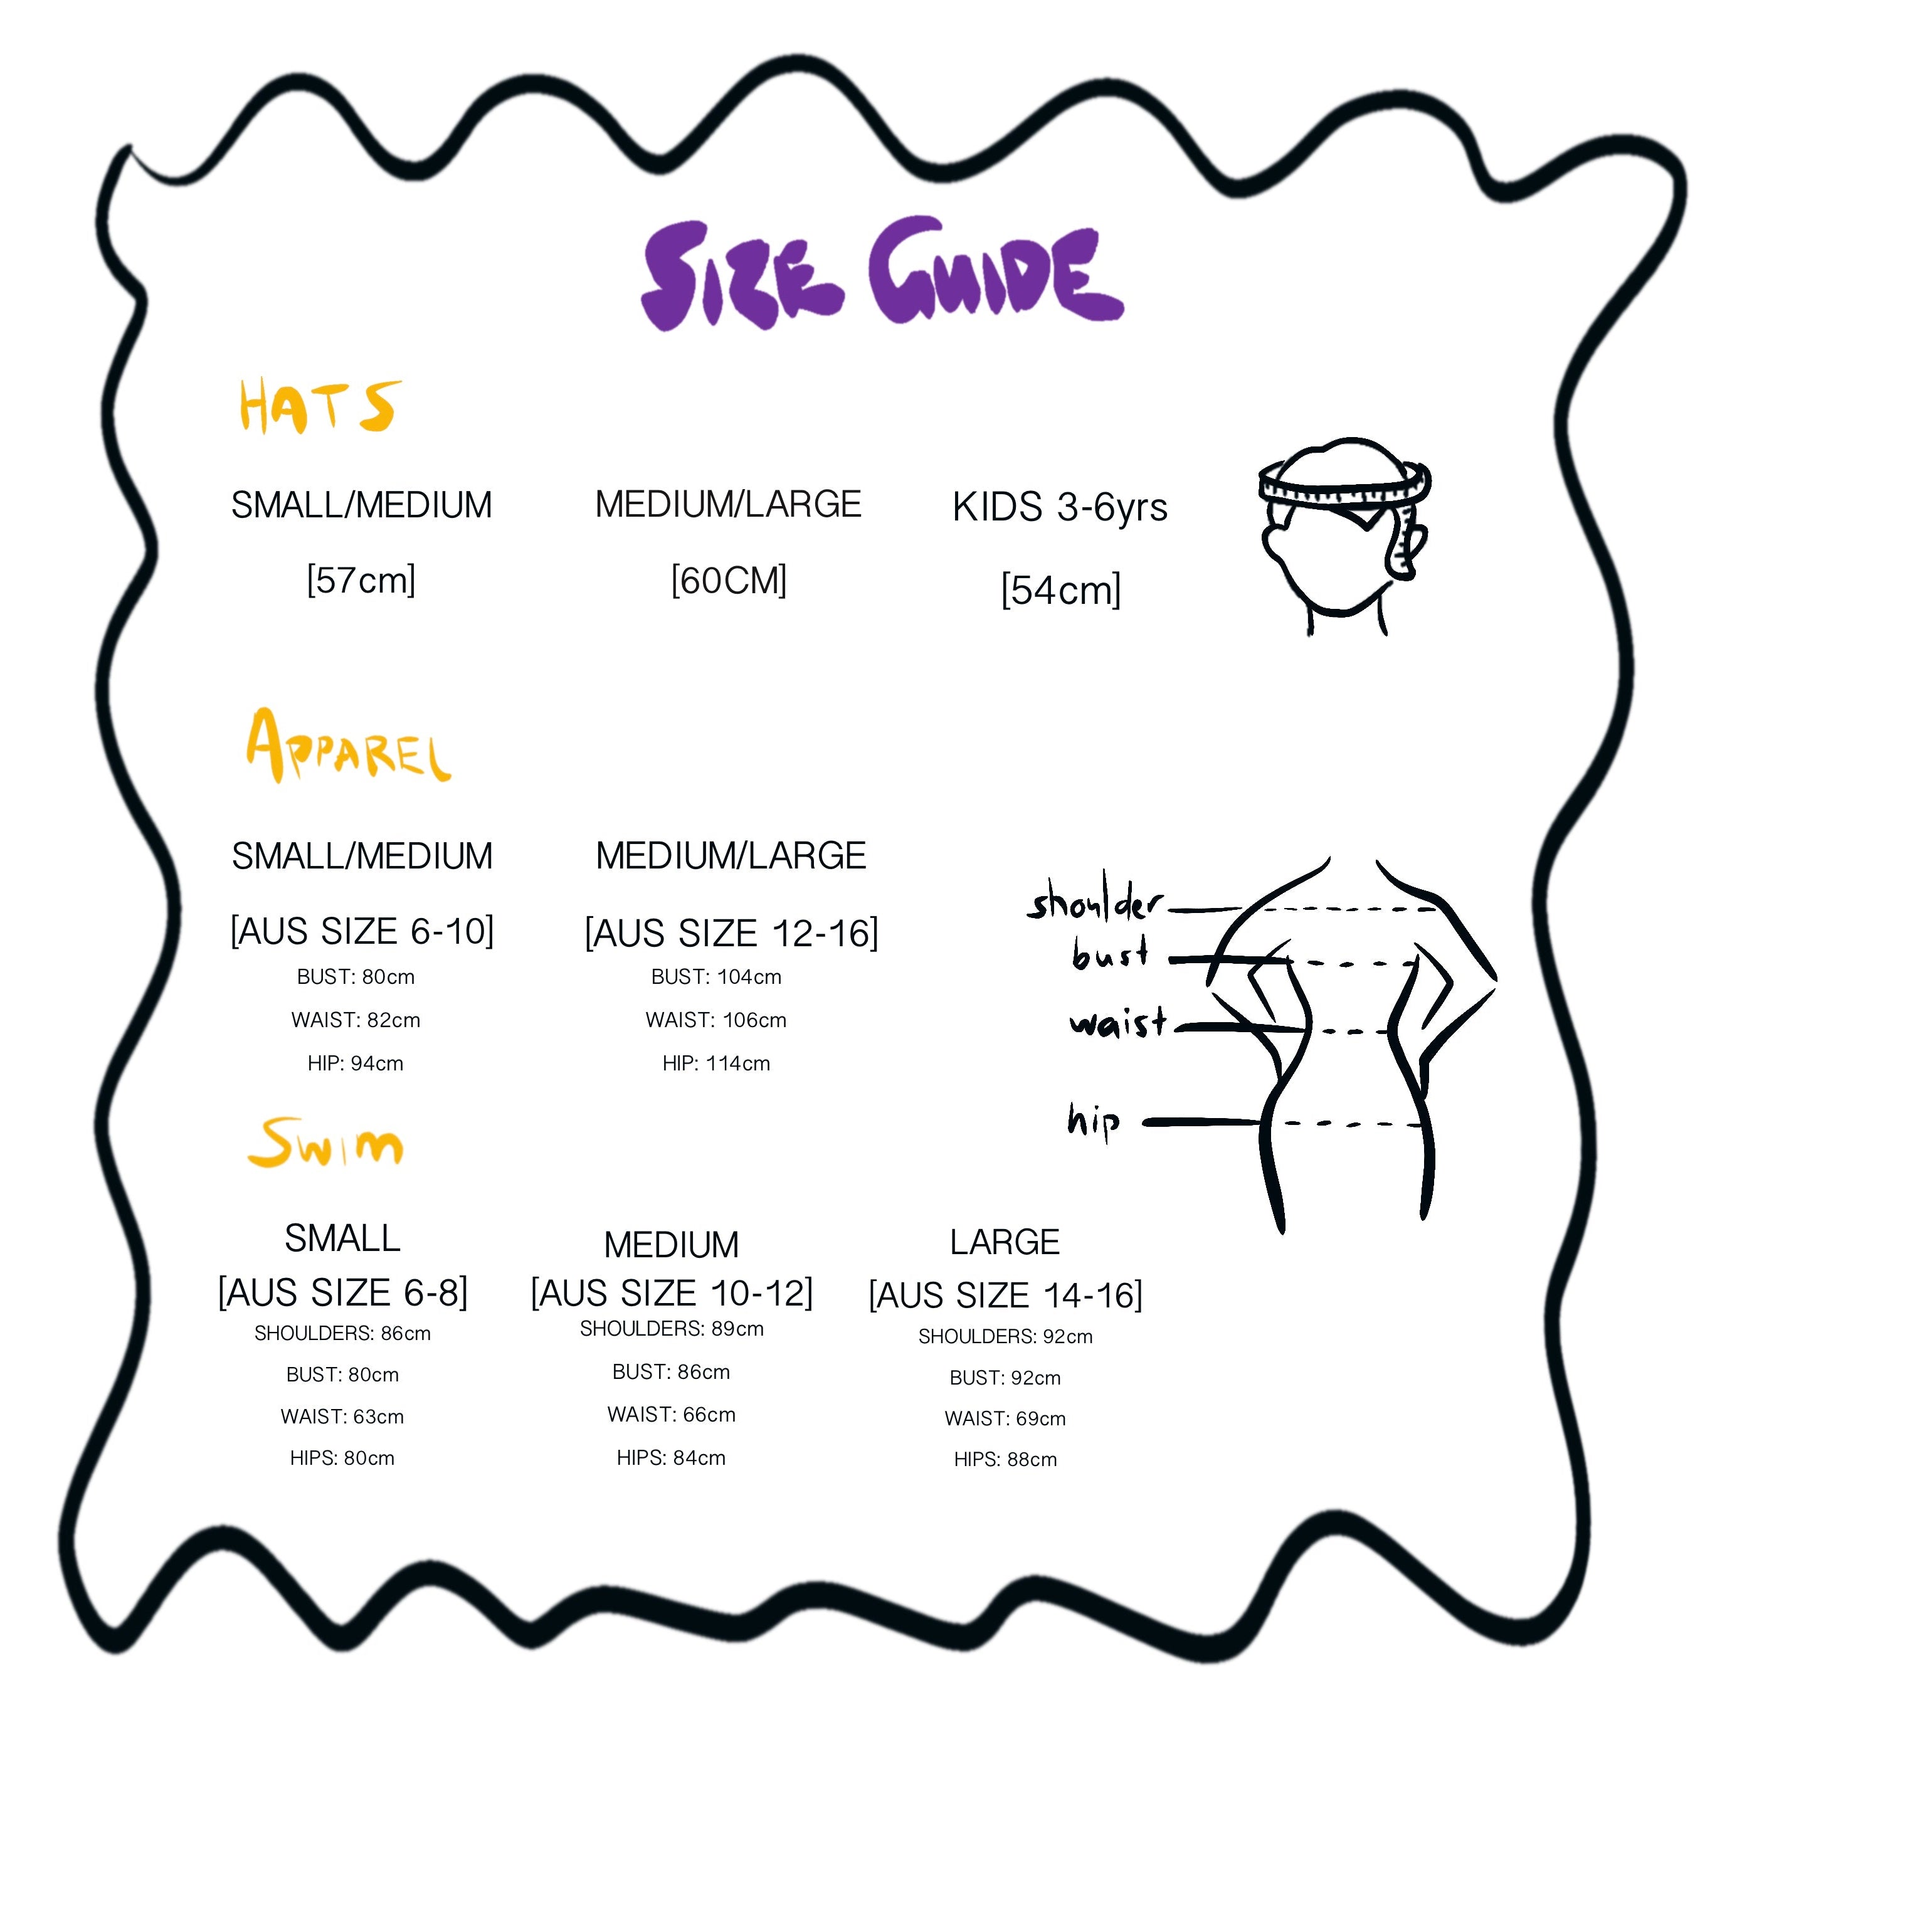 SIZE GUIDE
HATS
SMALL/MEDIUM
[57cm]
MEDIUM/LARGE
[60CM]
KIDS 3-6yrs
[54cm]
APPAREL
SMALL/MEDIUM
[AUS SIZE 6-10]
BUST: 80cm
WAIST: 82cm
HIP: 94cm
MEDIUM/LARGE
[AUS SIZE 12-16]
BUST: 104cm
WAIST: 106cm
HIP: 114cm
shoulder
bust
waist
hip
SWIM
SMALL
[AUS SIZE 6-8]
SHOULDERS: 86cm
BUST: 80cm
WAIST: 63cm
HIPS: 80cm
MEDIUM
[AUS SIZE 10-12]
SHOULDERS: 89cm
BUST: 86cm
WAIST: 66cm
HIPS: 84cm
LARGE
[AUS SIZE 14-16]
SHOULDERS: 92cm
BUST: 92cm
WAIST: 69cm
HIPS: 88cm